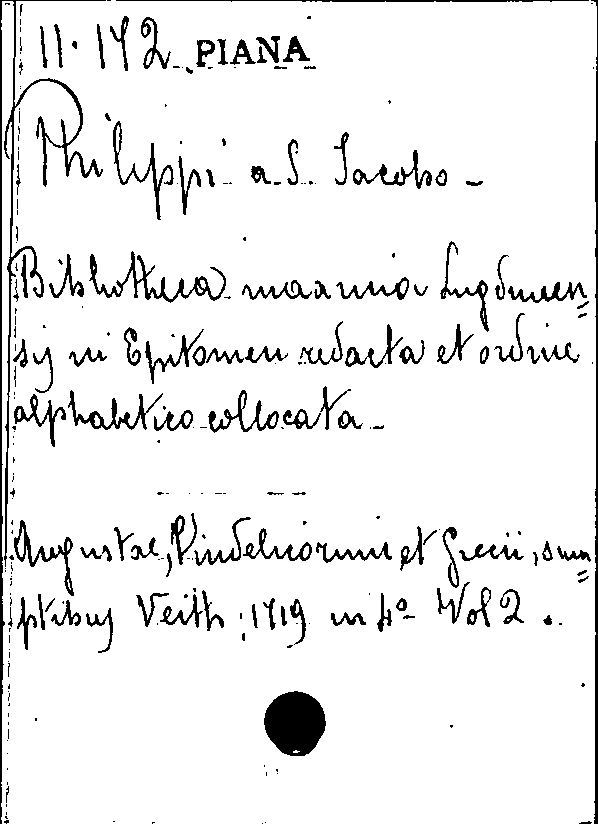 11·142 PIANA
Philippi a S. Jacobo -
Bibliotheca maxima Lugdunen=
sis in Epitomen redacta et ordine
alphabetico collocata -
Augustae, Vindelicorum et Grecii, sum=
ptibus Veith, 1719 in 4º Vol 2.